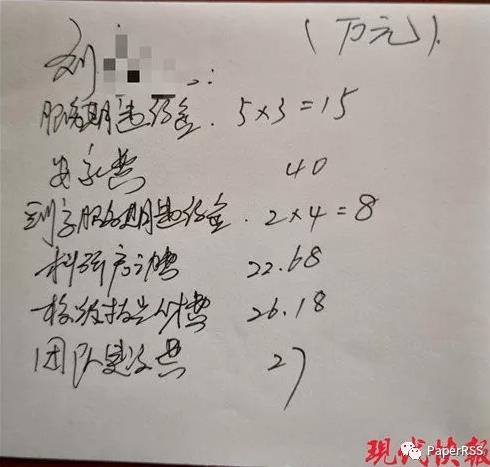 (万元).
刘
服务期违约金. 5×3=15
安家费 40
到字服务期违约金. 2×4=8
科研启动费 22.68
校级拔尖人才费 26.18
团队建设费 27
现代快报
PaperRSS